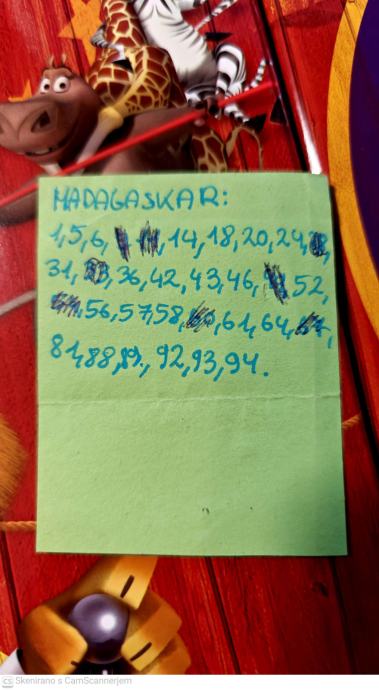 MADAGASKAR:
1,5,6, 14,18,20,24,
31, 36,42,43,46, 52,
56,57,58, 61,64,
81,88,89, 92,93,94.
CS Skenirano s CamScannerjem